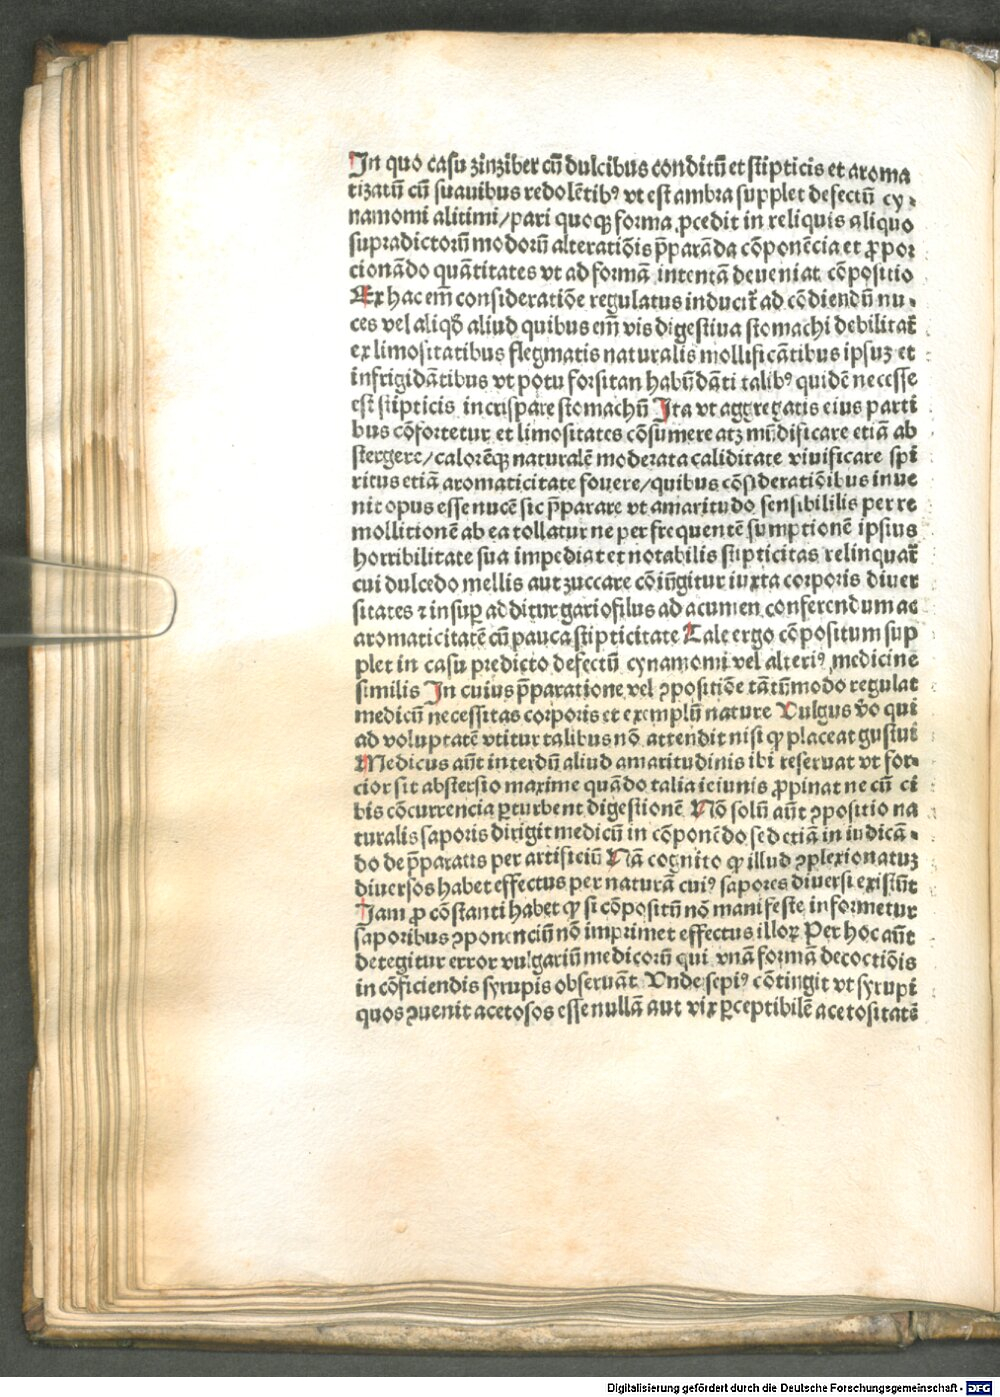 In quo casu zinziber cū dulcibus conditū et stipticis et aroma
tizatū cū suauibus redolētibꝰ vt est ambra supplet defectū cy⸗
namomi alitimi/pari quoqꝫ forma ꝓcedit in reliquis aliquo
supradictorū modorū alteratiōis p̄parāda cōponēcia et ꝓpor
cionādo quātitates vt ad formā intentā deueniat cōpositio
Ex hac em̄ consideratiōe regulatus inducit̄ ad cōdiendū nu⸗
ces vel aliqḋ aliud quibus em̄ vis digestiua stomachi debilitat̄
ex limositatibus flegmatis naturalis mollificātibus ipsuꝫ et
infrigidātibus vt potu forsitan habūdāti talibꝰ quidē necesse
est stipticis incrispare stomachū Ita vt aggregatis eius parti
bus cōfortetur et limositates cōsumere atꝫ mūdificare etiā ab
stergere/calorēqꝫ naturalē moderata caliditate viuificare spi
ritus etiā aromaticitate fouere/quibus cōsideratiōibus inue
nit opus esse nucē sic p̄parare vt amaritudo sensibililis per re
mollitionē ab ea tollatur ne per frequentē sumptionē ipsius
horribilitate sua impediat et notabilis stipticitas relinquat̄
cui dulcedo mellis aut zuccare cōiūgitur iuxta corporis diuer
sitates ⁊ insuꝑ additur gariofilus ad acumen conferendum ac
aromaticitatē cū pauca stipticitate Tale ergo cōpositum sup
plet in casu predicto defectū cynamomi vel alteriꝰ medicine
similis In cuius p̄paratione vel ꝯpositiōe tātūmodo regulat
medicū necessitas corporis et exemplū nature Vulgus v̄o qui
ad voluptatē vtitur talibus nō attendit nisi ꝙ placeat gustui
Medicus aūt interdū aliud amaritudinis ibi reseruat vt for⸗
cior sit abstersio maxime quādo talia ieiunis ꝓpinat ne cū ci
bis cōcurrencia ꝑturbent digestionē Nō solū aūt ꝯpositio na
turalis saporis dirigit medicū in cōponēdo sed etiā in iudicā⸗
do de p̄paratis per artificiū Nā cognito ꝙ illud ꝯplexionatuꝫ
diuersos habet effectus per naturā cuiꝰ sapores diuersi existūt
Jam ꝓ cōstanti habet ꝙ si cōpositū nō manifeste informetur
saporibus ꝯponenciū nō imprimet effectus illoꝝ Per hoc aūt
detegitur error vulgariū medicorū qui vnā formā decoctiōis
in cōficiendis syrupis obseruāt Vnde sepiꝰ cōtingit vt syrupi
quos ꝯuenit acetosos esse nullā aut vix ꝑceptibilē acetositatē
Digitalisierung gefördert durch die Deutsche Forschungsgemeinschaft - DFG